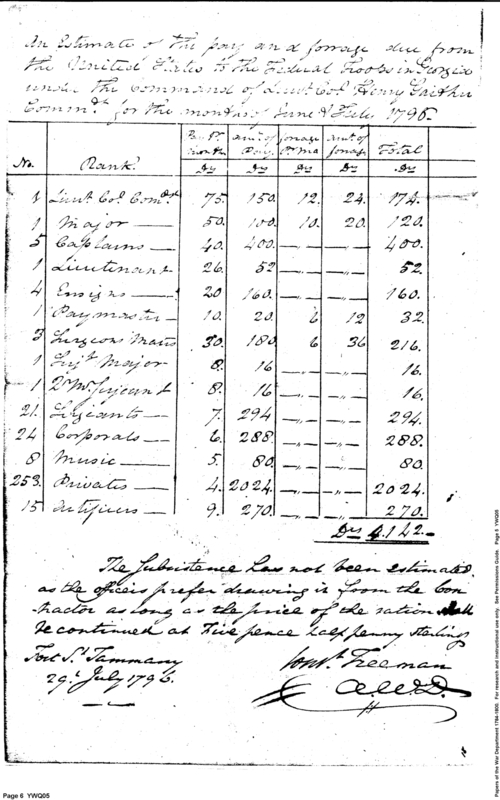 An Estimate of the pay and forrage due from
the United States to the Federal Troops in Georgia
under the command of Lieut Col. Henry Gaither
Commdt for the months of June & July 1796.
No. Rank. Pay Pr month amt. of Pay. forage Pr. Mo amt. of forage Total
Drs Drs Drs Drs Drs
1 Lieut Col. Comdt 75. 150. 12. 24. 174.
1 Major — 50. 100. 10. 20. 120.
5 Captains — 40. 400. — — „ — 400.
1 Lieutenant 26. 52 — — „ — 52.
4 Ensigns — 20 160. — — „ — 160.
1 Paymaster — 10. 20. 6 12 32.
3 Surgeons Mates 30. 180. 6 36 216.
1 Serjt. Major 8. 16 — — „ — 16.
1 Qr. Mr. Serjeant 8. 16 — — „ — 16.
21. Serjeants — 7. 294 — — „ — 294.
24 Corporals — 6. 288. — — „ — 288.
8 Music — 5. 80. — — „ — 80.
253. Privates — 4. 2024. — — „ — 2024.
15 Artificers — 9. 270. — — „ — 270.
Drs 4.142—
The Subsistence has not been estimated
as the officers prefer drawing it from the Con
tractor as long as the price of the ration shall
be continued at Five pence half penny sterling
Fort St. Tammany
29t. July 1796.
Const. Freeman
A.W.D.
Page 6 YWQ05
Papers of the War Department 1784-1800. For research and instructional use only. See Permissions Guide. Page 6 YWQ05